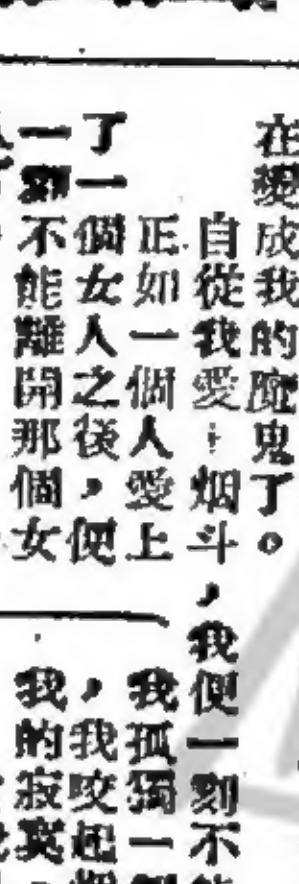 在變成我的魔鬼了。
自從我愛上烟斗，我便一刻不
正如一個人愛上
了一個女人之後，便
一刻不能離開那個女
我孤獨一
，我咬起
我的寂寞